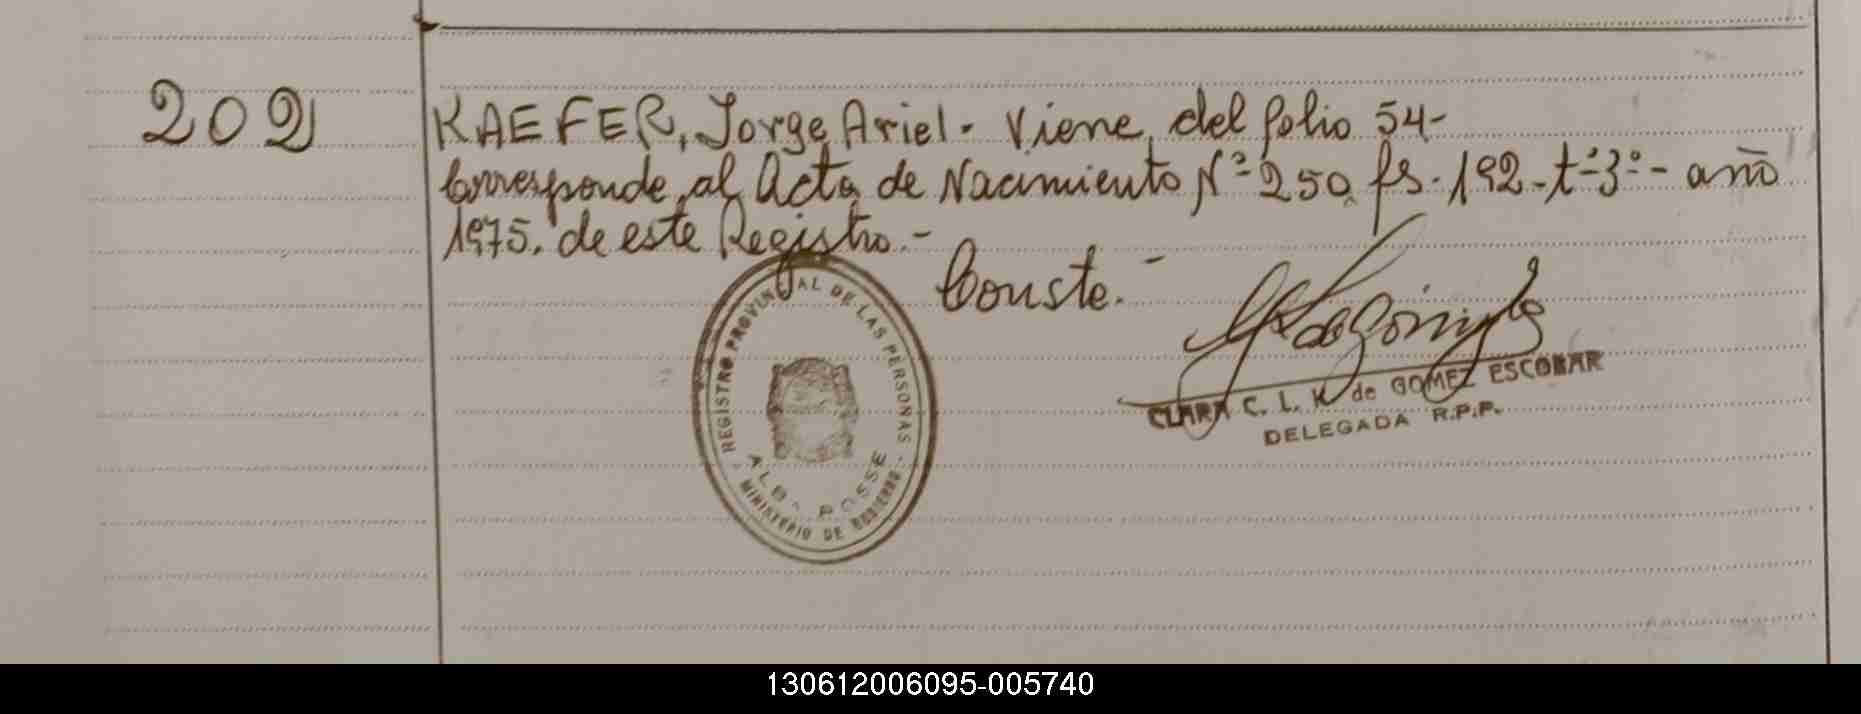 202
KAEFER, Jorge Ariel. Viene del folio 54-
Corresponde al Acta de Nacimiento Nº 250 fs. 192-tº3º- año
1975. de este Registro.-
Conste.-
REGISTRO PROVINCIAL DE LAS PERSONAS
ALBA POSSE
MINISTERIO DE GOBIERNO
CLARA C. L. K de GOMEZ ESCOBAR
DELEGADA R.P.P.
130612006095-005740